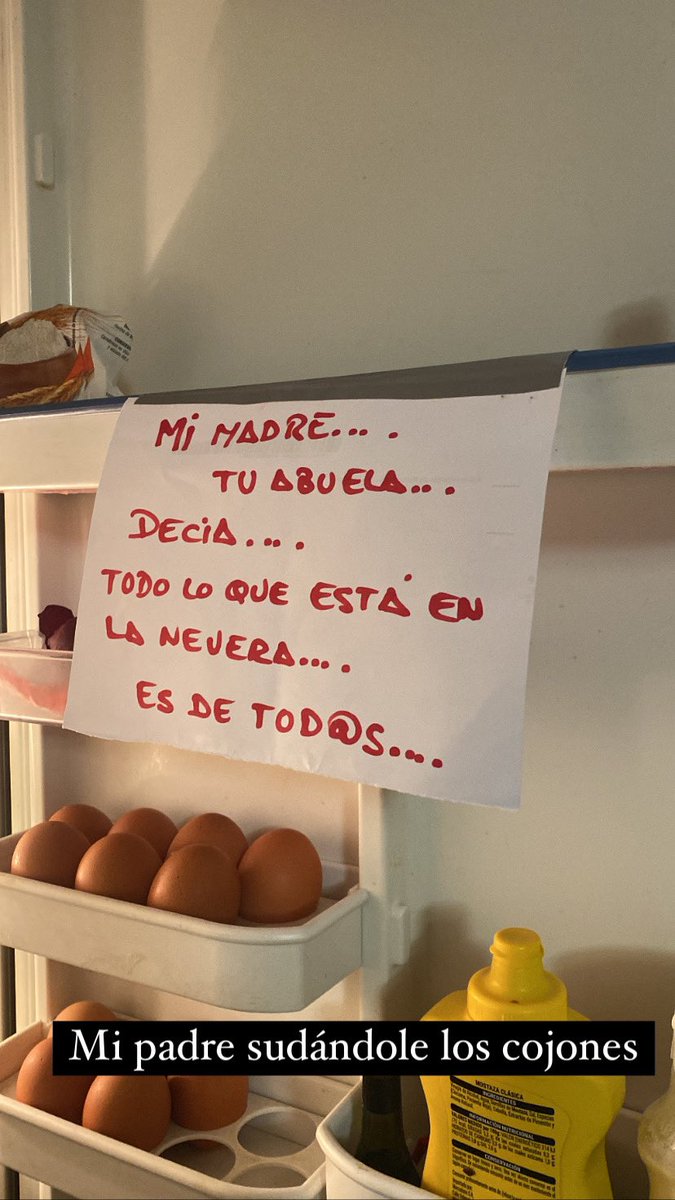 Mi MADRE... .
TU ABUELA... .
DECIA... .
TODO LO QUE ESTÁ EN
LA NEVERA... .
ES DE TOD@S... .
Mi padre sudándole los cojones
MOSTAZA CLÁSICA
INGREDIENTES
INFORMACIÓN NUTRICIONAL
CONSERVACIÓN